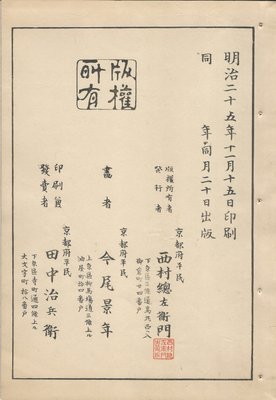 明治二十五年十一月十五日印刷
同 年同月二十日出版
版權
所有
版權所有者
發行者
京都府平民
西村總左衛門
畫者
京都府平民
今尾景年
上京區柳馬場通三條上ル
油屋町廿四番戶
印刷兼
發賣者
京都府平民
田中治兵衛
下京區寺町通四條上ル
大文字町十八番戶